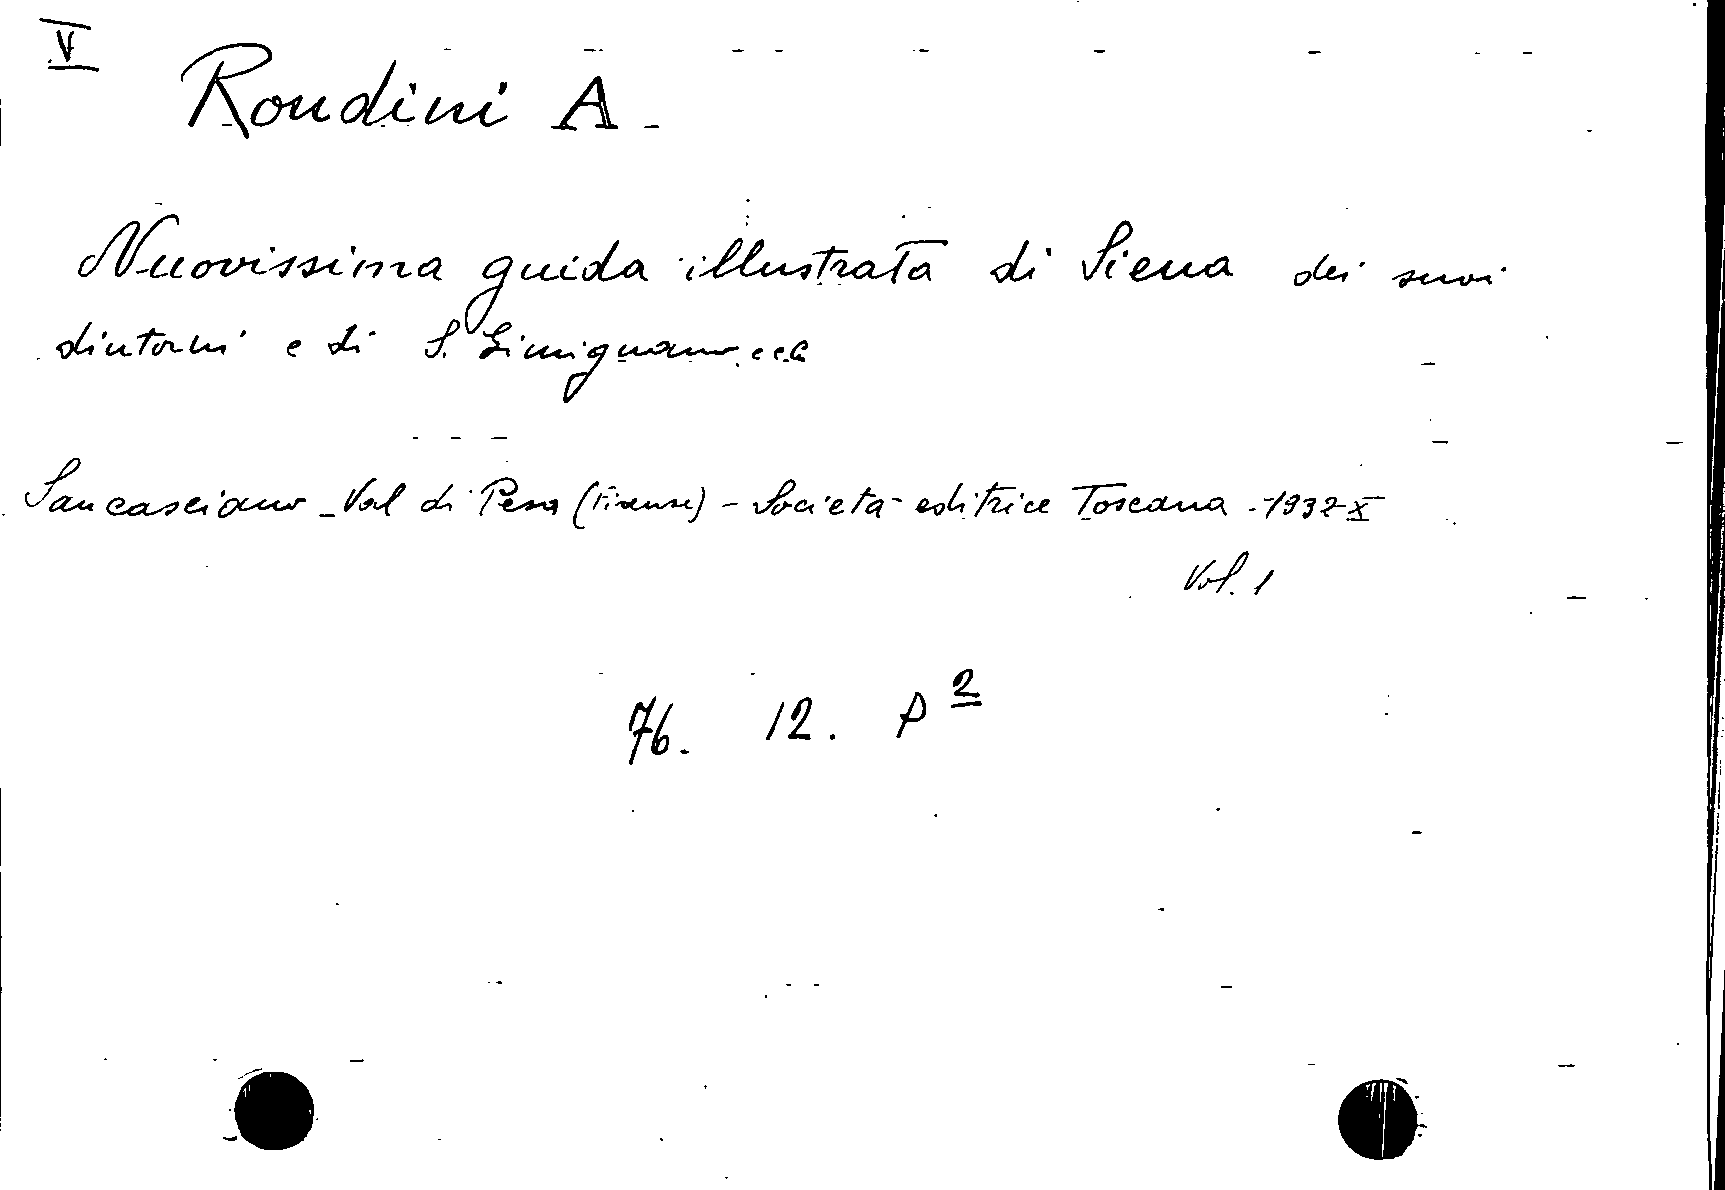 V
Rondini A.
Nuovissima guida illustrata di Siena dei suoi
dintorni e di S. Gimignano ecc
Sancasciano - Val di Pesa (Firenze) - Società editrice Toscana - 1932-X
Vol. 1
76. 12. P 2